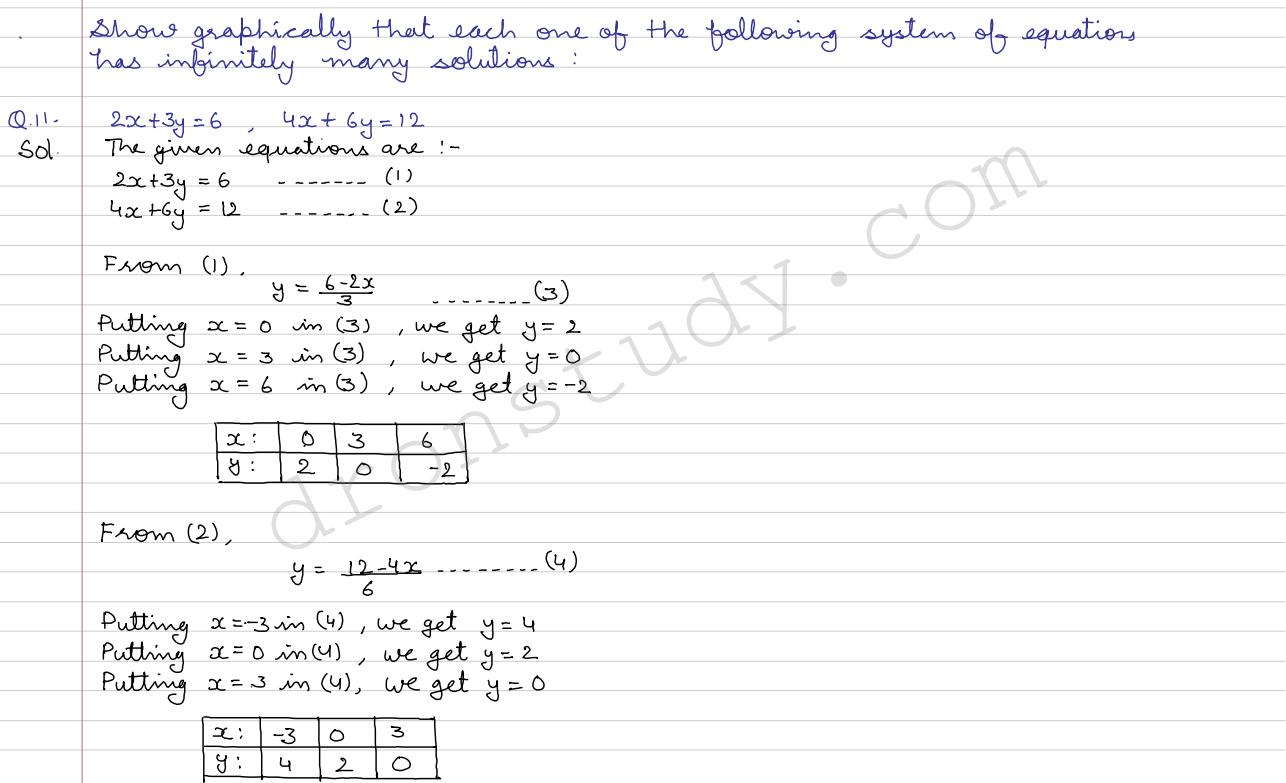 Show graphically that each one of the following system of equations
has infinitely many solutions :
Q.11- 2x+3y=6 , 4x+6y=12
Sol. The given equations are :-
2x+3y = 6 ------- (1)
4x+6y = 12 ------- (2)
From (1),
y = (6-2x)/3 -------- (3)
Putting x = 0 in (3) , we get y = 2
Putting x = 3 in (3) , we get y = 0
Putting x = 6 in (3) , we get y = -2
x : 0 3 6
y : 2 0 -2
From (2),
y = (12-4x)/6 --------- (4)
Putting x = -3 in (4) , we get y = 4
Putting x = 0 in (4) , we get y = 2
Putting x = 3 in (4), we get y = 0
x : -3 0 3
y : 4 2 0
dronstudy.com